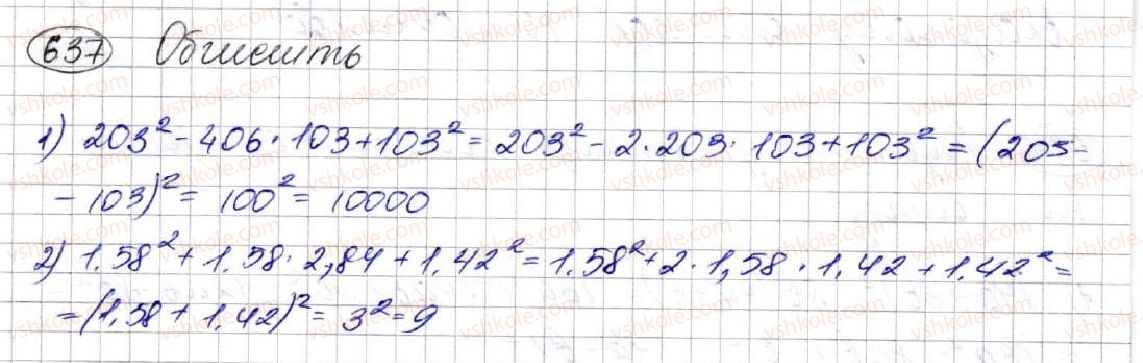 637 Обчисліть
1) 203² - 406 · 103 + 103² = 203² - 2 · 203 · 103 + 103² = (203 -
- 103)² = 100² = 10000
2) 1.58² + 1.58 · 2,84 + 1.42² = 1.58² + 2 · 1,58 · 1.42 + 1.42² =
= (1.58 + 1.42)² = 3² = 9
vshkole.com